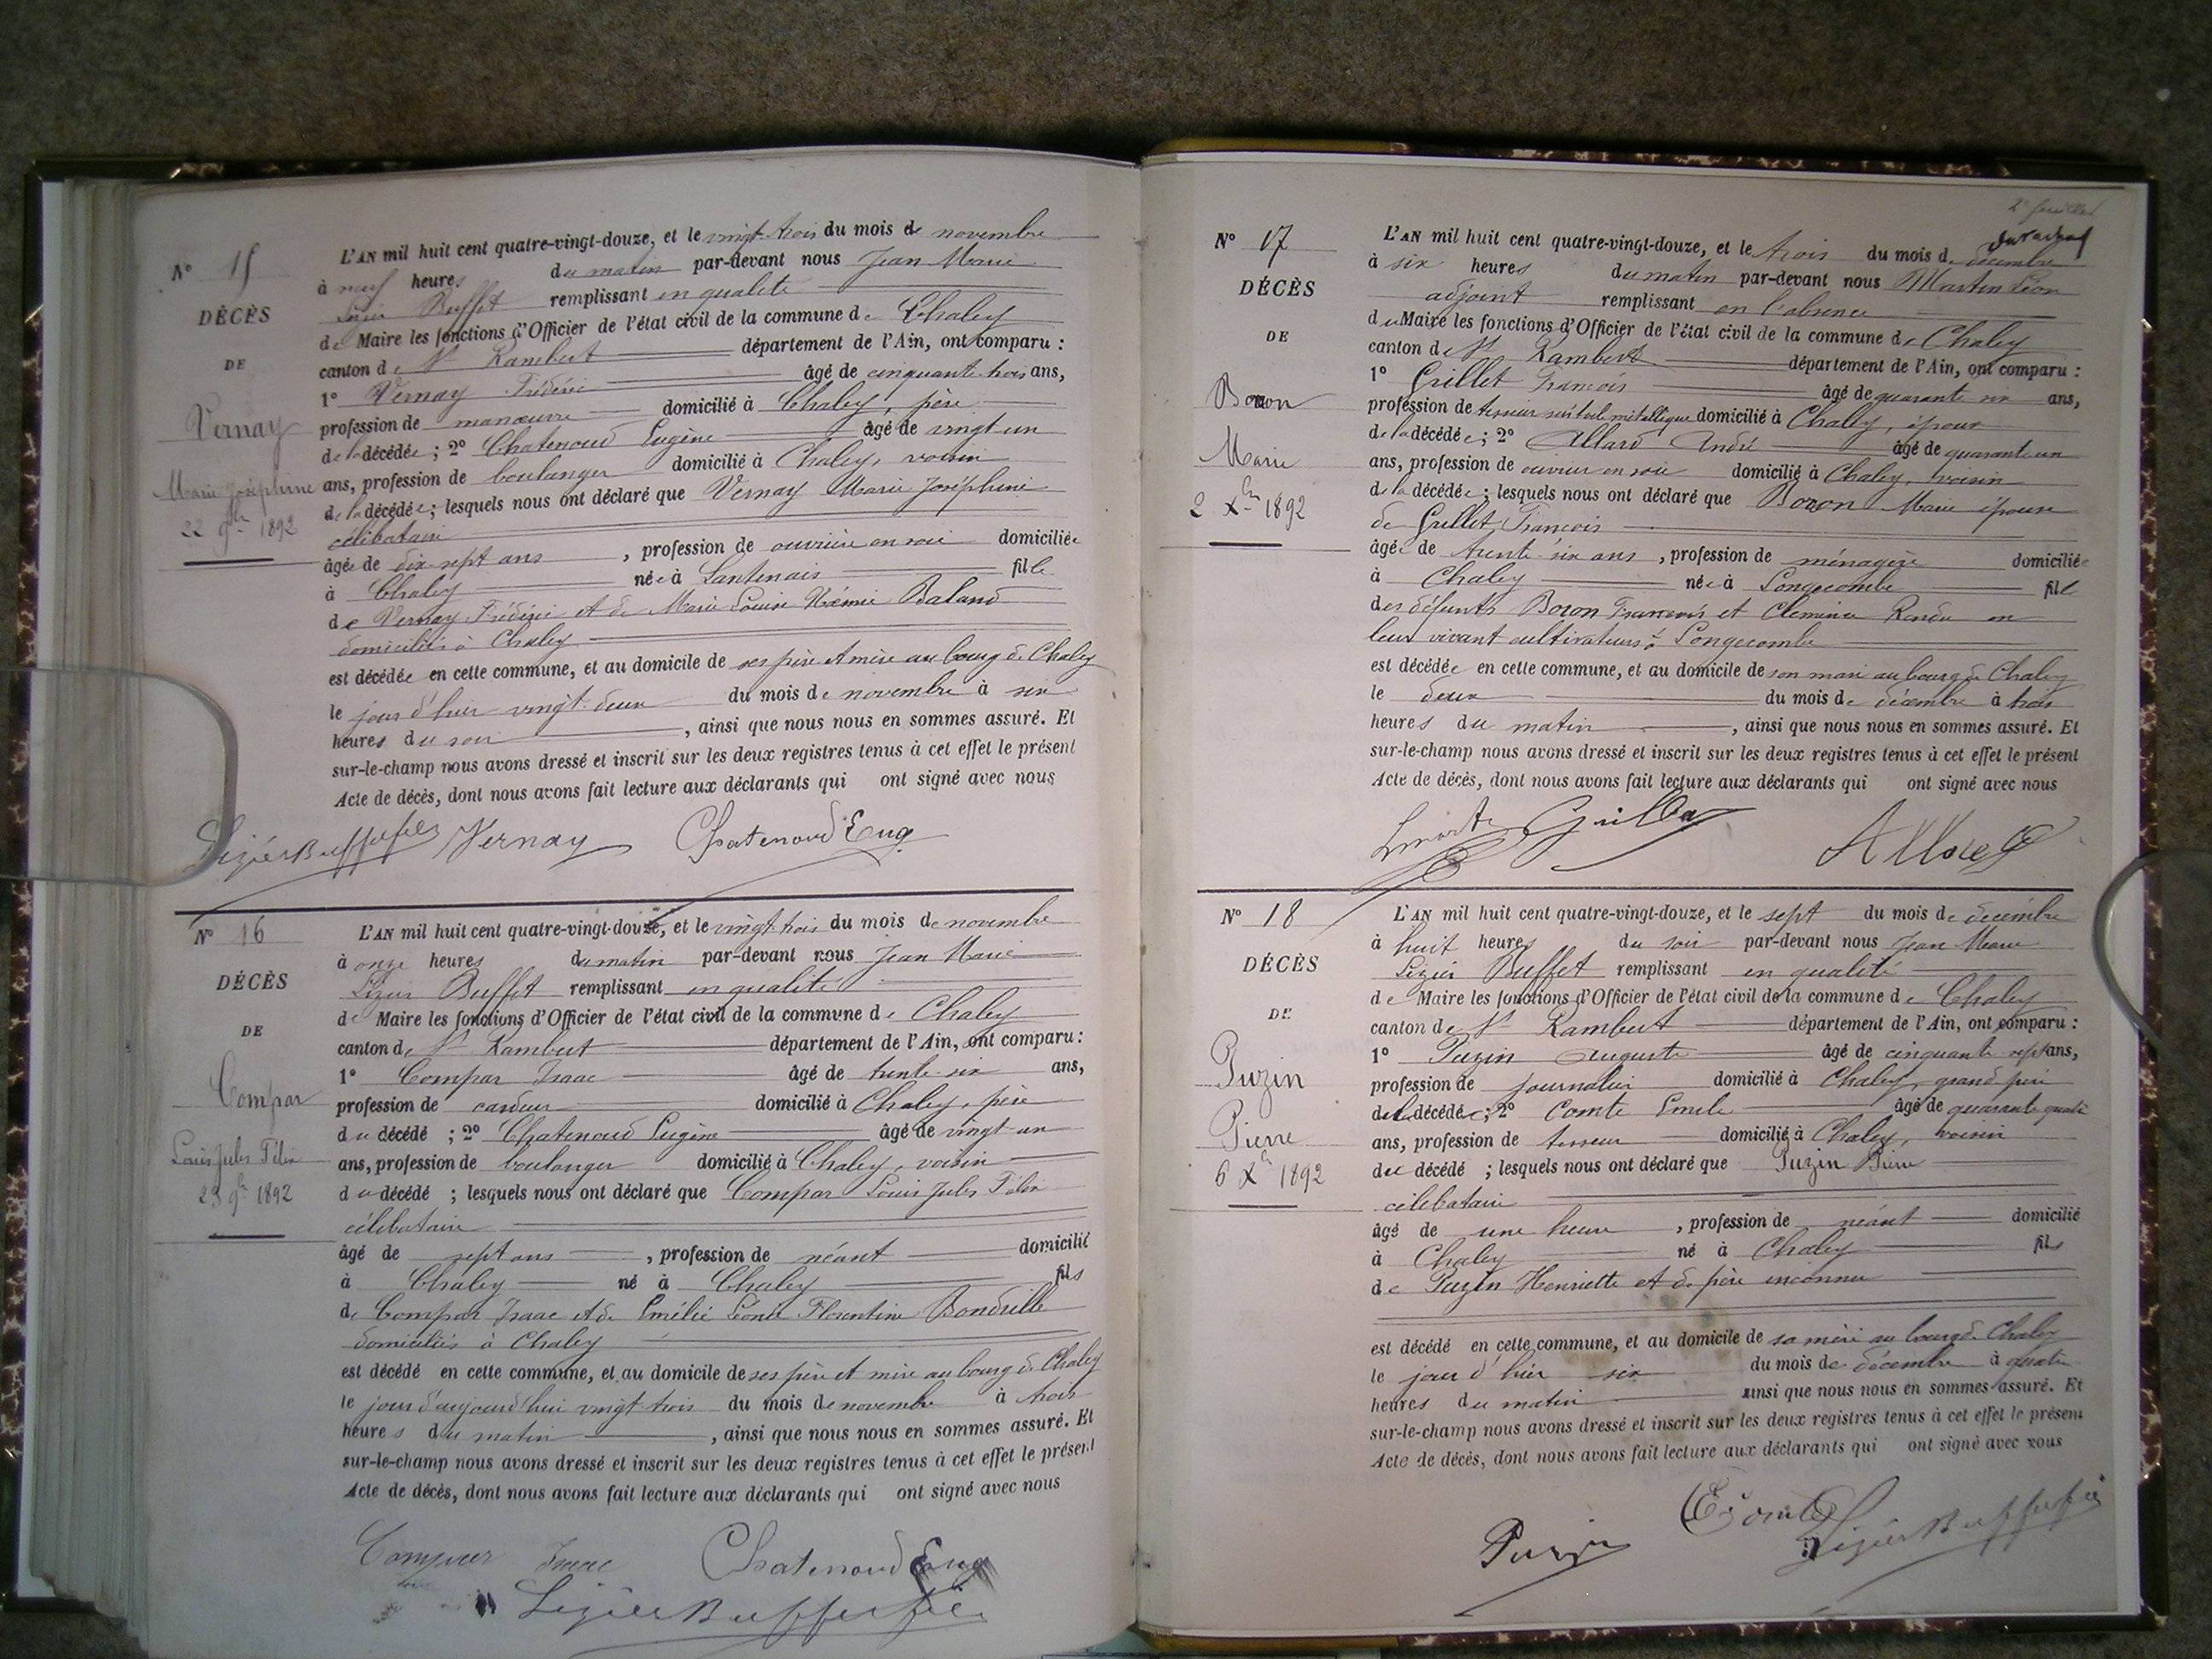 N° 15
DÉCÈS
DE
Vernay
Marie Joséphine
22 9bre 1892
L'AN mil huit cent quatre-vingt-douze, et le vingt-trois du mois de novembre
à neuf heures du matin par-devant nous Jean Marie
Lizier Buffet remplissant en qualité
de Maire les fonctions d'Officier de l'état civil de la commune de Chaley
canton de St Rambert département de l'Ain, ont comparu :
1° Vernay Frédéric âgé de cinquante trois ans,
profession de manœuvre domicilié à Chaley, père
de la décédée ; 2° Chatenoud Eugène âgé de vingt un
ans, profession de boulanger domicilié à Chaley, voisin
de la décédée ; lesquels nous ont déclaré que Vernay Marie Joséphine
célibataire
âgée de dix-sept ans , profession de ouvrière en soie domiciliée
à Chaley née à Lantenais fille
de Vernay Frédéric et de Marie Louise Noémie Baland
domiciliés à Chaley
est décédée en cette commune, et au domicile de ses père et mère au bourg de Chaley
le jour d'hier vingt-deux du mois de novembre à six
heures du soir , ainsi que nous nous en sommes assuré. Et
sur-le-champ nous avons dressé et inscrit sur les deux registres tenus à cet effet le présent
Acte de décès, dont nous avons fait lecture aux déclarants qui ont signé avec nous
Lizier Buffet Vernay Chatenoud Eug
N° 16
DÉCÈS
DE
Compar
Louis Jules Félix
23 9bre 1892
L'AN mil huit cent quatre-vingt-douze, et le vingt-trois du mois de novembre
à onze heures du matin par-devant nous Jean Marie
Lizier Buffet remplissant en qualité
de Maire les fonctions d'Officier de l'état civil de la commune de Chaley
canton de St Rambert département de l'Ain, ont comparu :
1° Compar Isaac âgé de trente six ans,
profession de cardeur domicilié à Chaley, père
du décédé ; 2° Chatenoud Eugène âgé de vingt-un
ans, profession de boulanger domicilié à Chaley, voisin
du décédé ; lesquels nous ont déclaré que Compar Louis Jules Félix
célibataire
âgé de sept ans , profession de néant domicilié
à Chaley né à Chaley fils
de Compar Isaac et de Emélie Léonie Florentine Bondrille
domiciliés à Chaley
est décédé en cette commune, et au domicile de ses père et mère au bourg de Chaley
le jour d'aujourd'hui vingt trois du mois de novembre à trois
heures du matin , ainsi que nous nous en sommes assuré. Et
sur-le-champ nous avons dressé et inscrit sur les deux registres tenus à cet effet le présent
Acte de décès, dont nous avons fait lecture aux déclarants qui ont signé avec nous
Compar Isaac Chatenoud Eug
Lizier Buffet
N° 17
DÉCÈS
DE
Bozon
Marie
2 Xbre 1892
L'AN mil huit cent quatre-vingt-douze, et le trois du mois de décembre
à six heures du matin par-devant nous Martin Léon
adjoint remplissant en l'absence
du Maire les fonctions d'Officier de l'état civil de la commune de Chaley
canton de St Rambert département de l'Ain, ont comparu :
1° Grillet François âgé de quarante six ans,
profession de tisseur métallique domicilié à Chaley, époux
de la décédée ; 2° Allard André âgé de quarante un
ans, profession de ouvrier en soie domicilié à Chaley, voisin
de la décédée ; lesquels nous ont déclaré que Bozon Marie épouse
de Grillet François
âgée de trente six ans , profession de ménagère domiciliée
à Chaley née à Longecombe fille
des défunts Bozon François et Clémence Rendu en
leur vivant cultivateurs à Longecombe
est décédée en cette commune, et au domicile de son mari au bourg de Chaley
le deux du mois de décembre à trois
heures du matin , ainsi que nous nous en sommes assuré. Et
sur-le-champ nous avons dressé et inscrit sur les deux registres tenus à cet effet le présent
Acte de décès, dont nous avons fait lecture aux déclarants qui ont signé avec nous
N° 18
DÉCÈS
DE
Puzin
Pierre
6 Xbre 1892
L'AN mil huit cent quatre-vingt-douze, et le sept du mois de décembre
à huit heures du soir par-devant nous Jean Marie
Lizier Buffet remplissant en qualité
de Maire les fonctions d'Officier de l'état civil de la commune de Chaley
canton de St Rambert département de l'Ain, ont comparu :
1° Puzin Auguste âgé de cinquante sept ans,
profession de journalier domicilié à Chaley, grand père
du décédé ; 2° Comte Emile âgé de quarante quatre
ans, profession de tisseur domicilié à Chaley, voisin
du décédé ; lesquels nous ont déclaré que Puzin Pierre
célibataire
âgé de une heure , profession de néant domicilié
à Chaley né à Chaley fils
de Puzin Henriette et de père inconnu
est décédé en cette commune, et au domicile de sa mère au bourg de Chaley
le jour d'hier six du mois de décembre à quatre
heures du matin ainsi que nous nous en sommes assuré. Et
sur-le-champ nous avons dressé et inscrit sur les deux registres tenus à cet effet le présent
Acte de décès, dont nous avons fait lecture aux déclarants qui ont signé avec nous
Puzin E Comte Lizier Buffet